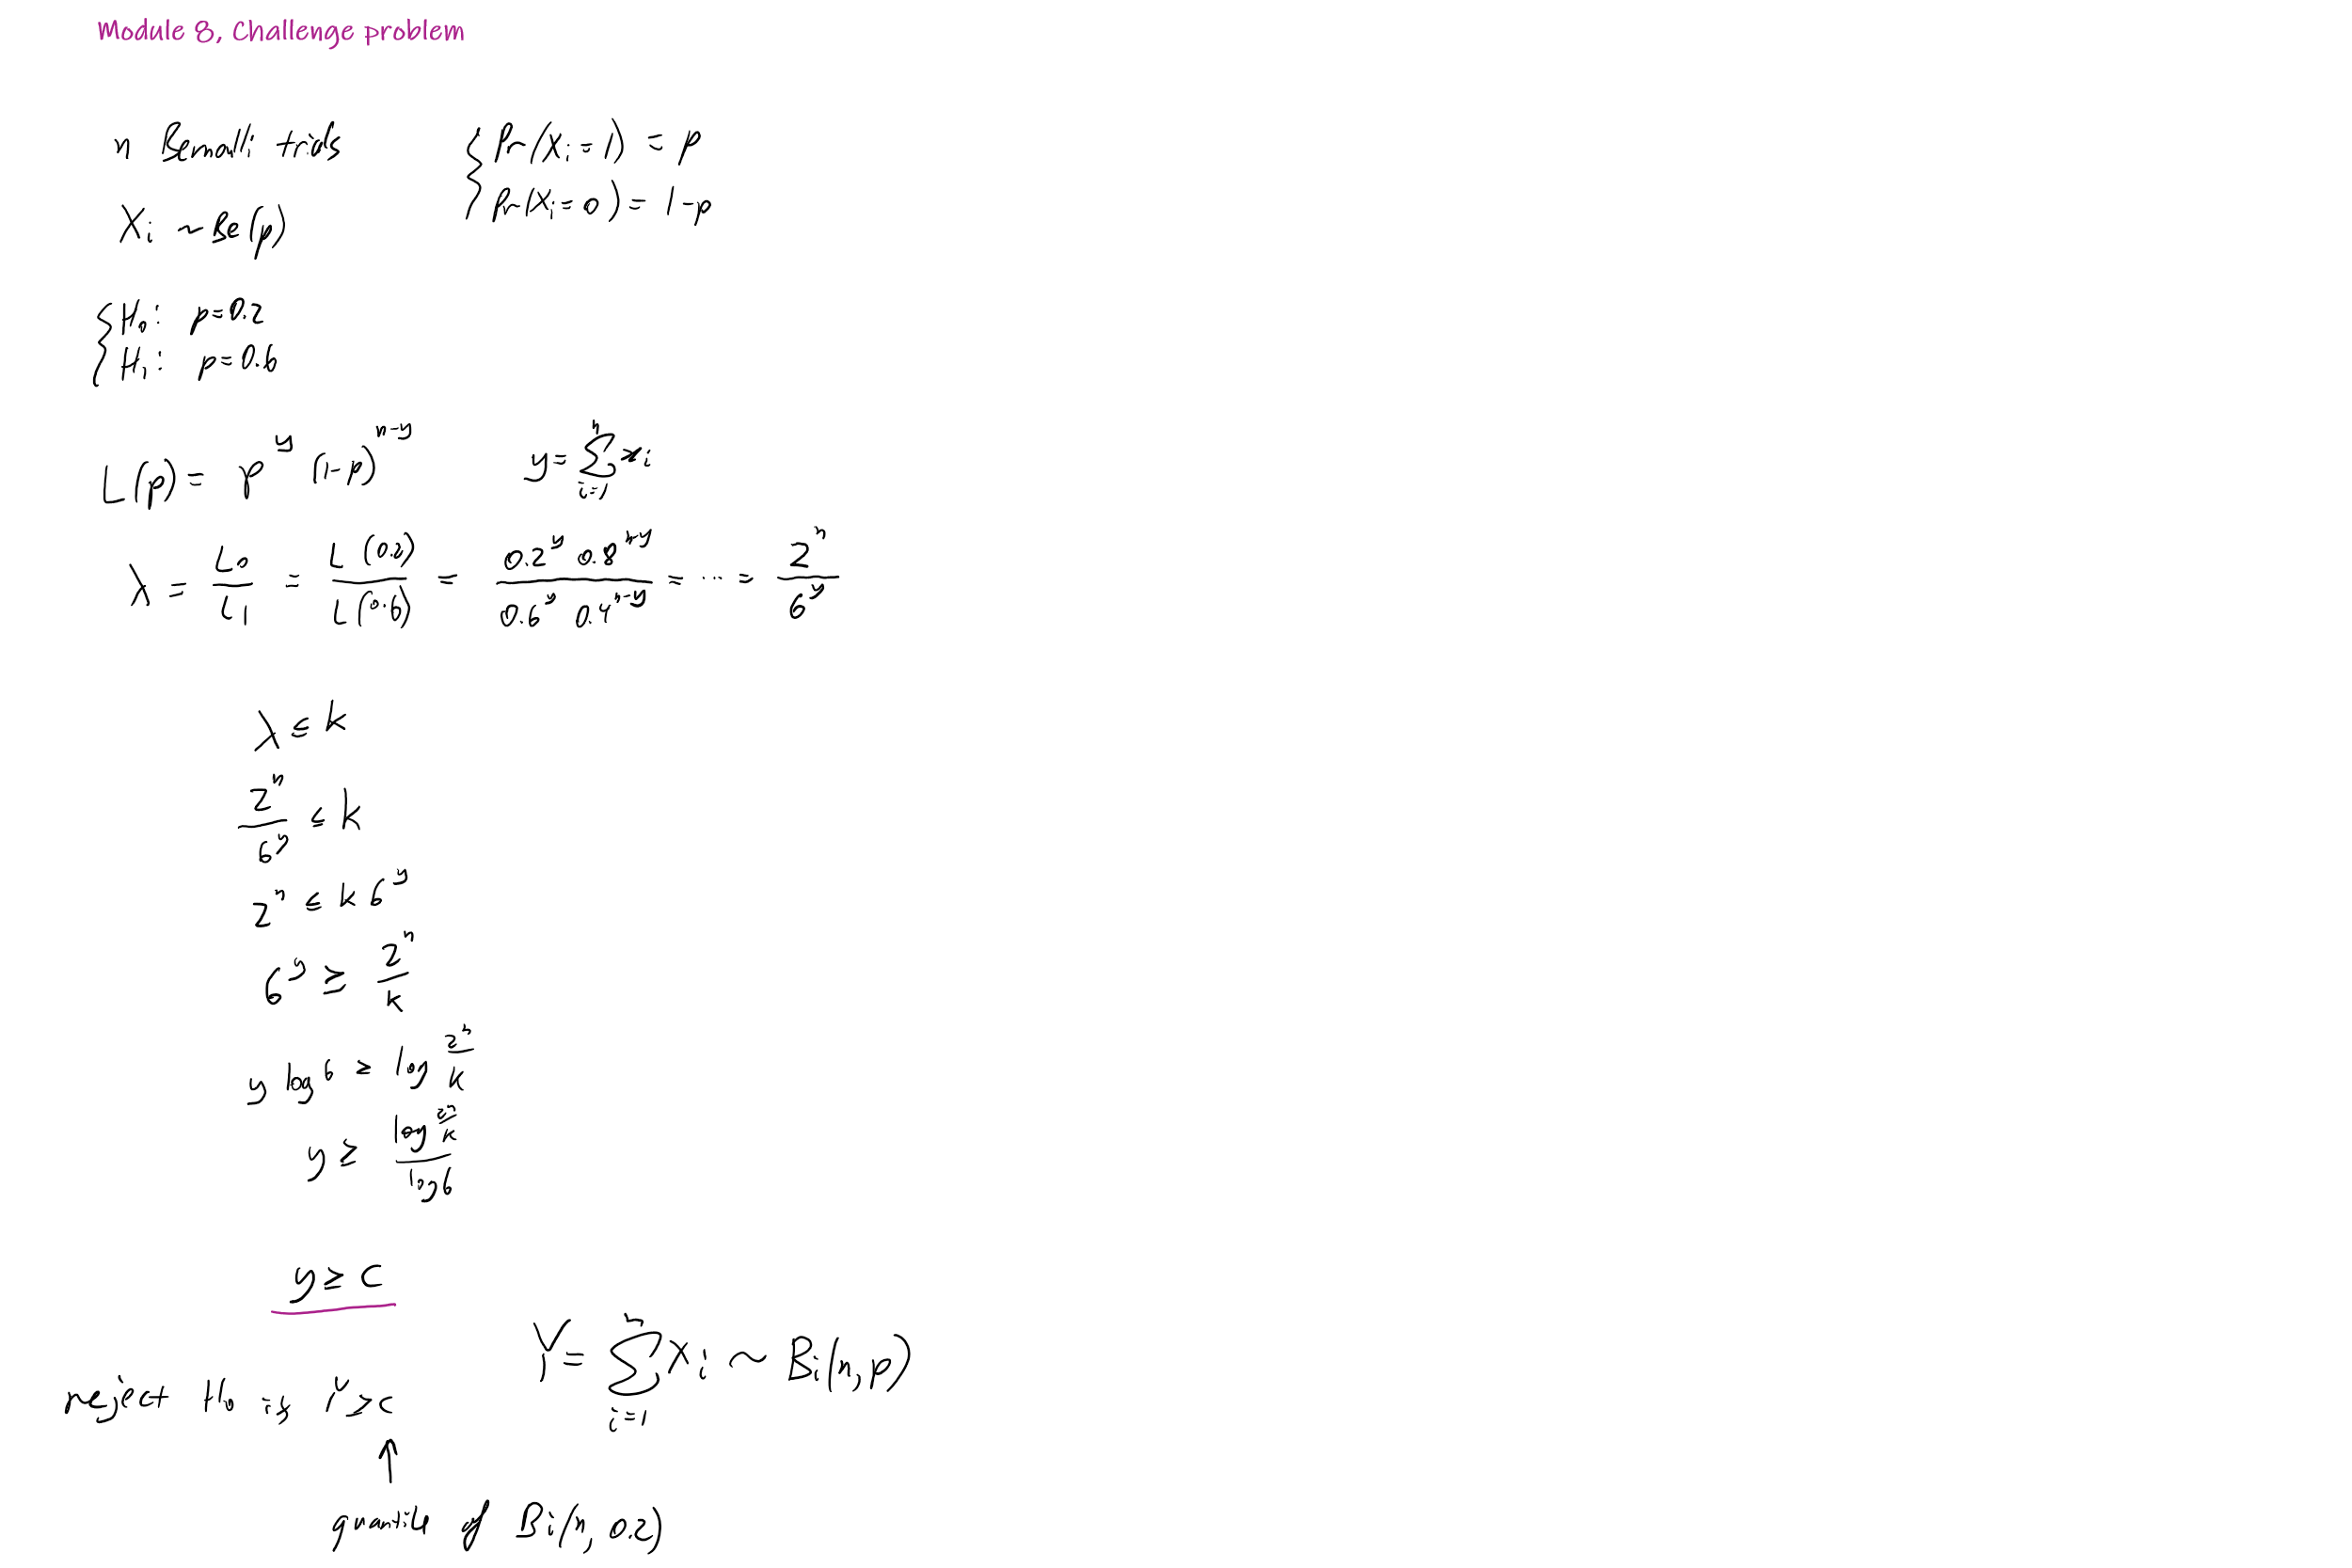 Module 8, Challenge problem
n Bernoulli trials { Pr(Xi = 1) = p
Xi ~ Be(p) Pr(Xi = 0) = 1-p
{ H0: p=0.2
H1: p=0.6
L(p) = p^y (1-p)^(n-y) y = Σ_{i=1}^n xi
λ = L0/L1 = L(0.2)/L(0.6) = (0.2^y 0.8^(n-y))/(0.6^y 0.4^(n-y)) = ... = 2^n/6^y
λ ≤ k
2^n/6^y ≤ k
2^n ≤ k 6^y
6^y ≥ 2^n/k
y log 6 ≥ log 2^n/k
y ≥ (log 2^n/k)/(log 6)
y ≥ c
Y = Σ_{i=1}^n Xi ~ Bi(n, p)
reject H0 if Y ≥ c
↑
quantile of Bi(n, 0.2)